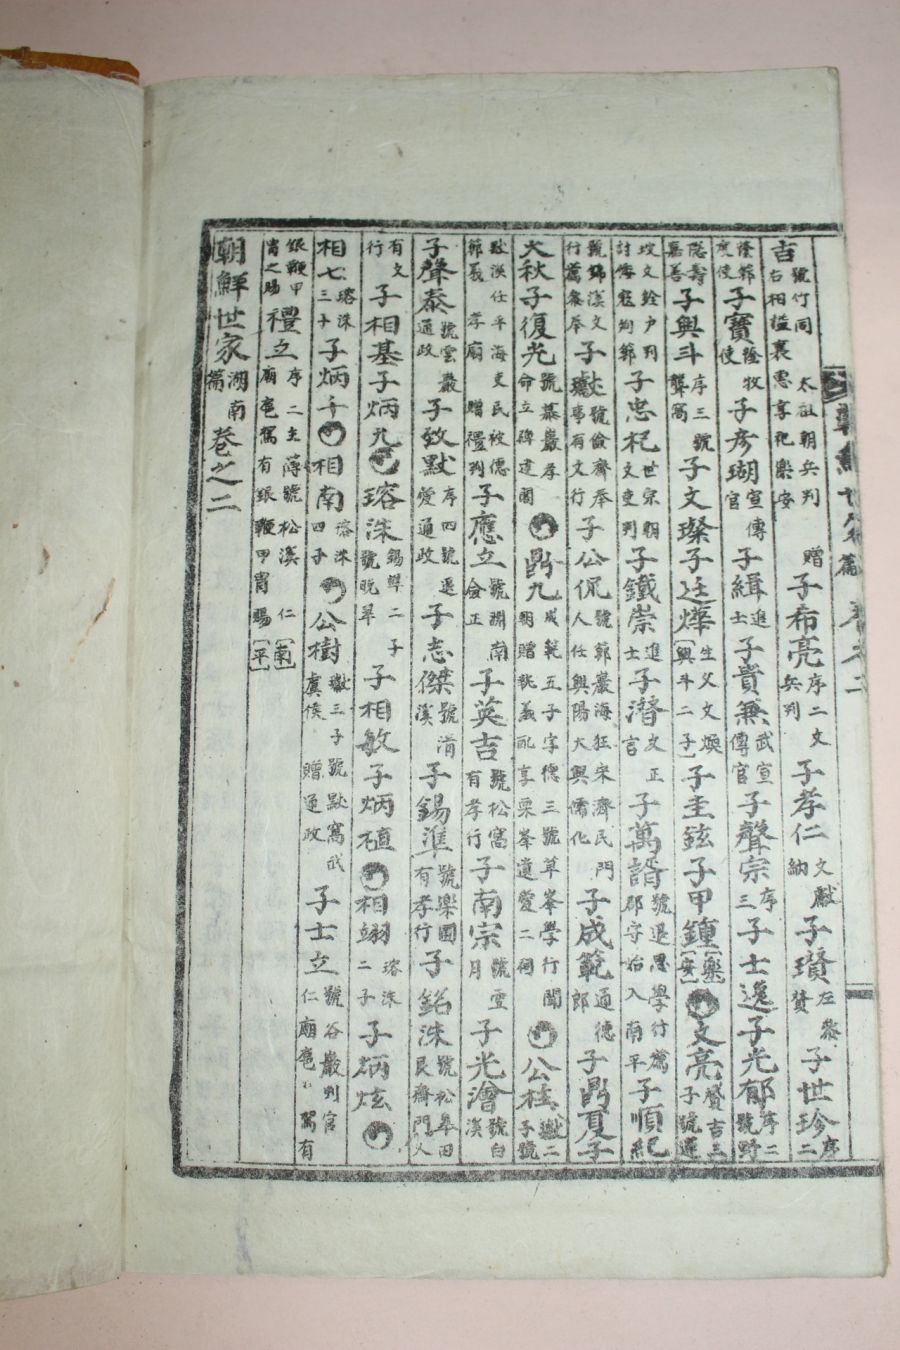 吉號竹同太祖朝兵判右相謚襄惠享祀樂安贈子希亮序二文兵判子孝仁文獻納子瓚左參贊子世珍序二
蔭節度使子寶蔭牧使子彦瑚宣傳官子緝進士子貴兼武宣傳官子聲宗序三子士逸子光郁序二號野
隱壽嘉善子興斗序三號聾窩子文璨子廷燁生父文煥興斗二子子圭鉉子甲鍾樂安文亮贇吉三子號遯
校文銓戶判討倭寇殉節子忠杞世宗朝文吏判子鐵崇進士子潛文正言子萬諝號退思學行薦郡守始入南平子順紀
號錦溪文行薦參奉子獻號儉齋奉事有文行子公侃號節巖海狂宋濟民門人任興陽大興儒化子成範通德郎子鼎夏子
大秋子復光號慕巖孝命立碑建閣鼎九成範五子字德三號草峯學行聞朝贈執義配享栗峯遺愛二祠公桂二子號
溪任平海吏民被德節義孝廟贈禮判子應立號湖南僉正子英吉號松窩有孝行子南宗號雪月子光澮號白溪
子聲泰號雲巖通政子致默序四號退愛通政子志傑號淸溪子錫準號樂園有孝行子銘洙號松皐田艮齋門人
有文行子相基子炳九瑢洙錫準二子號晩翠子相敏子炳植相翊瑢洙二子子炳炫
相七瑢洙三子子炳千相南瑢洙四子公樹三子號默窩武虞侯贈通政子士立號谷巖判官仁廟寵駕有
銀鞭甲冑之賜禮立序二主簿號松溪仁廟寵駕有銀鞭甲冑賜南平
朝鮮世家湖南篇卷之二